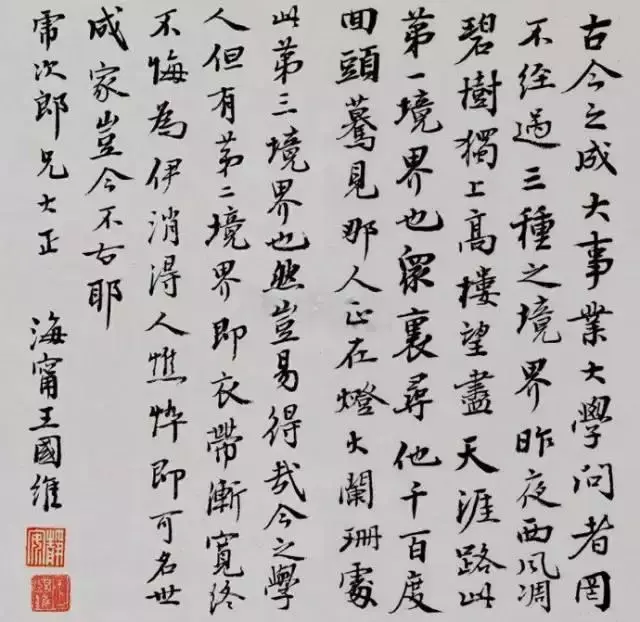 古今之成大事業大學問者罔
不經過三種之境界昨夜西風凋
碧樹獨上高樓望盡天涯路此
第一境界也眾裏尋他千百度
回頭驀見那人正在燈火闌珊處
此第三境界也然豈易得哉今之學
人但有第二境界即衣帶漸寬終
不悔為伊消得人憔悴即可名世
成家豈今不古耶
帍次郎兄大正
海甯王國維
靜安